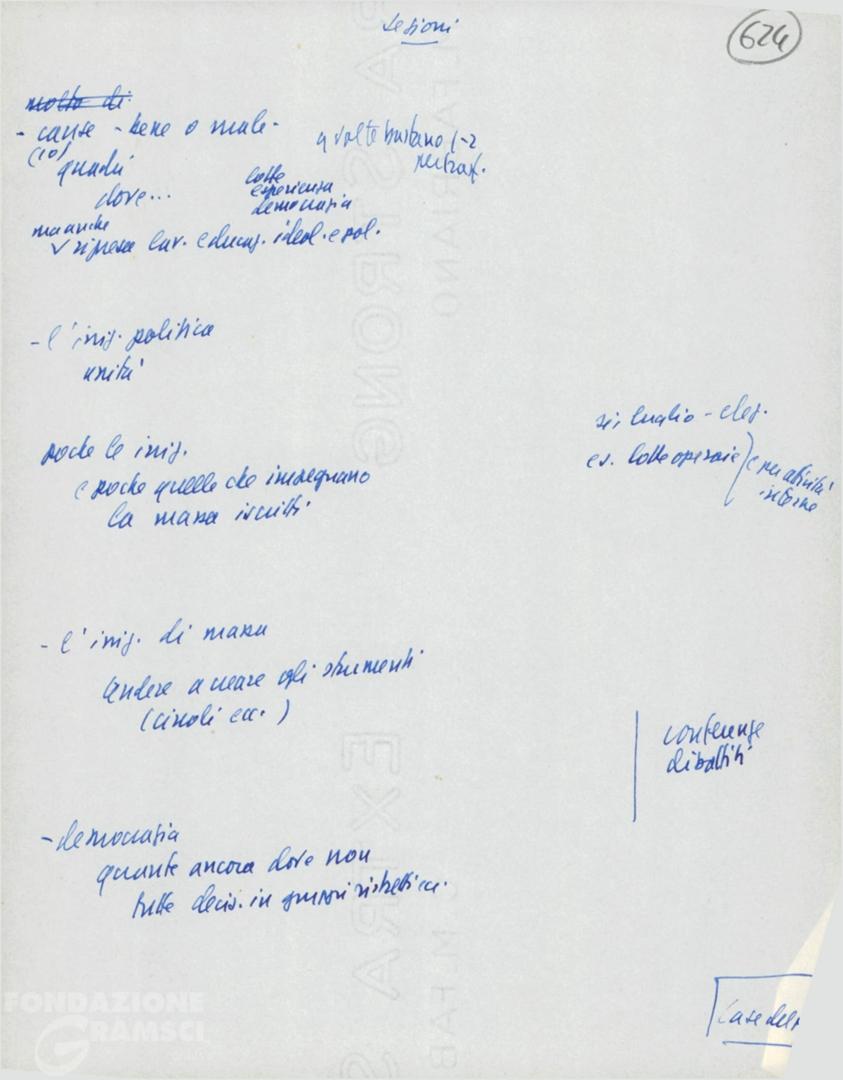 Sezioni
624
molto di
- cause - bene o male -
(10)
quadri
dove...
a volte bastano 1-2
lotte
esperienza
democrazia
ma anche
ripresa lav. educaz. ideol. e pol.
- l'iniz. politica
unità
poche le iniz.
e poche quelle che impegnano
la massa iscritti
si, luglio - elez.
es. lotte operaie
e su attività
interne
- l'iniz. di massa
tendere a creare gli strumenti
(circoli ecc.)
conferenze
dibattiti
- democrazia
quante ancora dove non
tutte decis. in gruppi ristretti ecc.
Case del
FONDAZIONE
GRAMSCI